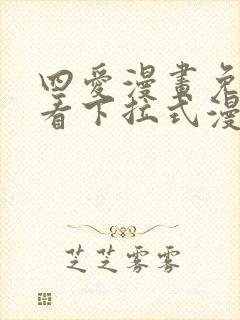 四愛漫畫免
看下拉式漫
芝芝雾雾